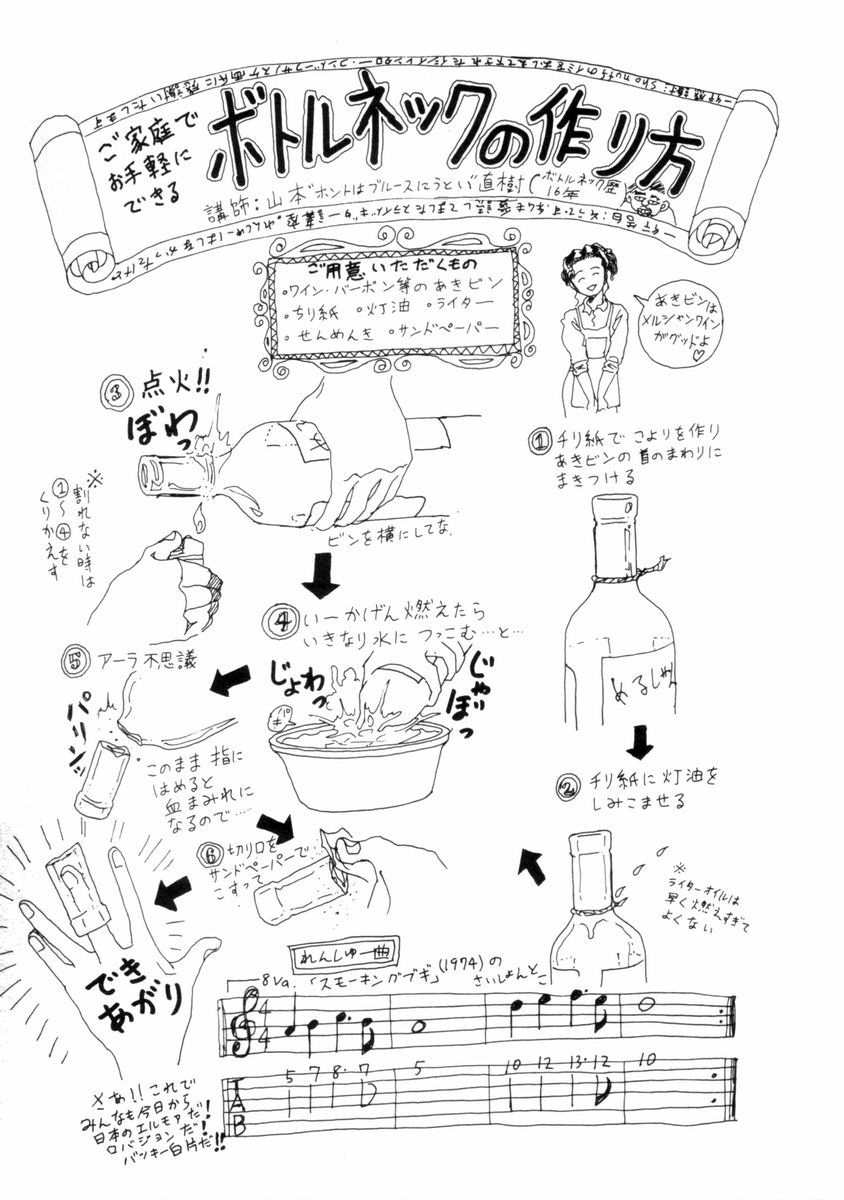 ご家庭で
お手軽に
できる
ボトルネックの作り方
講師：山本"ホントはブルースにうとい"直樹（ボトルネック歴
16年
ご用意いただくもの
・ワイン・バーボン等のあきビン
・ちり紙 ・灯油 ・ライター
・せんめんき ・サンドペーパー
あきビンは
メルシャンワイン
がグッドよ
♡
① チリ紙でこよりを作り
あきビンの首のまわりに
まきつける
めるしゃん
② チリ紙に灯油を
しみこませる
※
ライターオイルは
早く燃えすぎて
よくない
③ 点火!!
ぼわっ
ビンを横にしてな。
※割れない時は
①〜④を
くりかえす
④ いーかげん燃えたら
いきなり水につっこむ…と…
じょわっ
じゃぼっ
パキ
⑤ アーラ不思議
パリンッ
このまま指に
はめると
血まみれに
なるので……
⑥ 切り口を
サンドペーパーで
こすって
できあがり
※さあ!!これで
みんなも今日から
日本のエルモアだ!
ロバジョンだ!
バッキー白片だ!!
れんしゅー曲
8va.「スモーキングブギ」(1974)の
さいしょんとこ
4
4
T
A
B
5 7 8・7 5 10 12 13・12 10